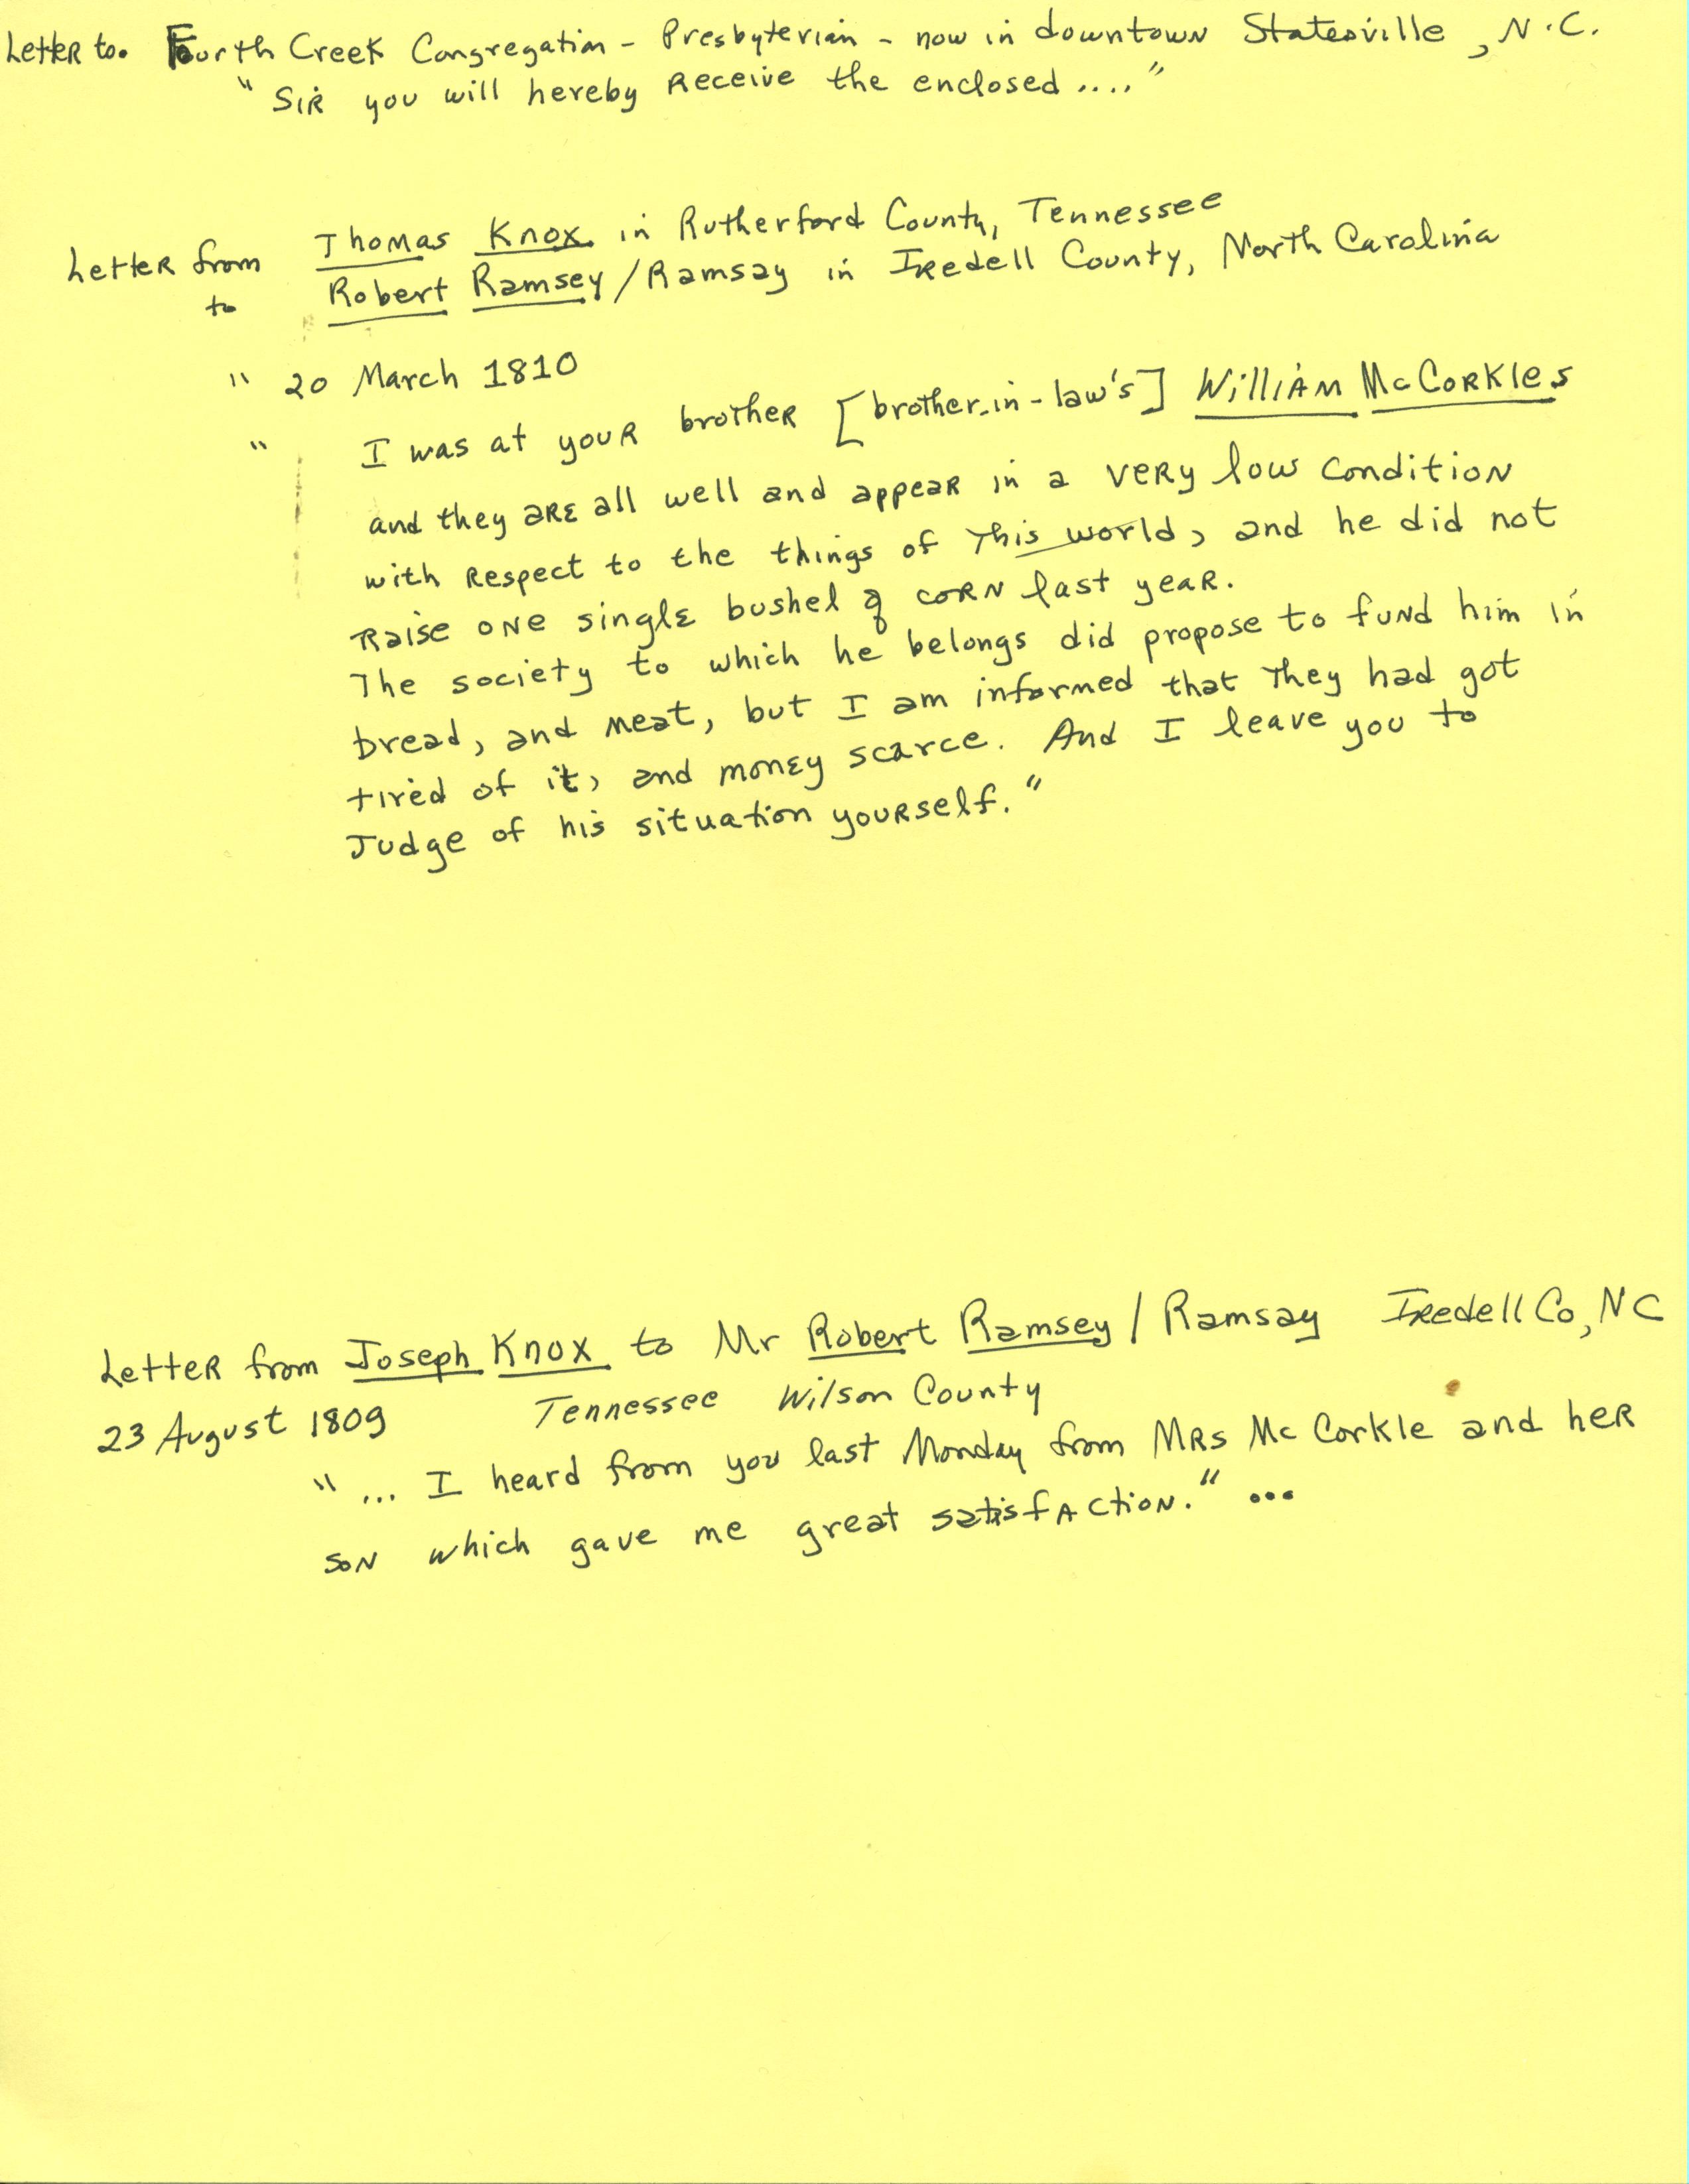 Letter to. Fourth Creek Congregation - Presbyterian - now in downtown Statesville, N.C.
"Sir you will hereby receive the enclosed ...."
Letter from Thomas Knox in Rutherford County, Tennessee
to Robert Ramsey/Ramsay in Iredell County, North Carolina
" 20 March 1810
" I was at your brother [brother-in-law's] William McCorkles
and they are all well and appear in a very low condition
with respect to the things of this world, and he did not
raise one single bushel of corn last year.
The society to which he belongs did propose to fund him in
bread, and meat, but I am informed that they had got
tired of it, and money scarce. And I leave you to
Judge of his situation yourself."
Letter from Joseph Knox to Mr Robert Ramsey / Ramsay Iredell Co, NC
23 August 1809 Tennessee Wilson County
"... I heard from you last Monday from Mrs McCorkle and her
son which gave me great satisfaction." ...